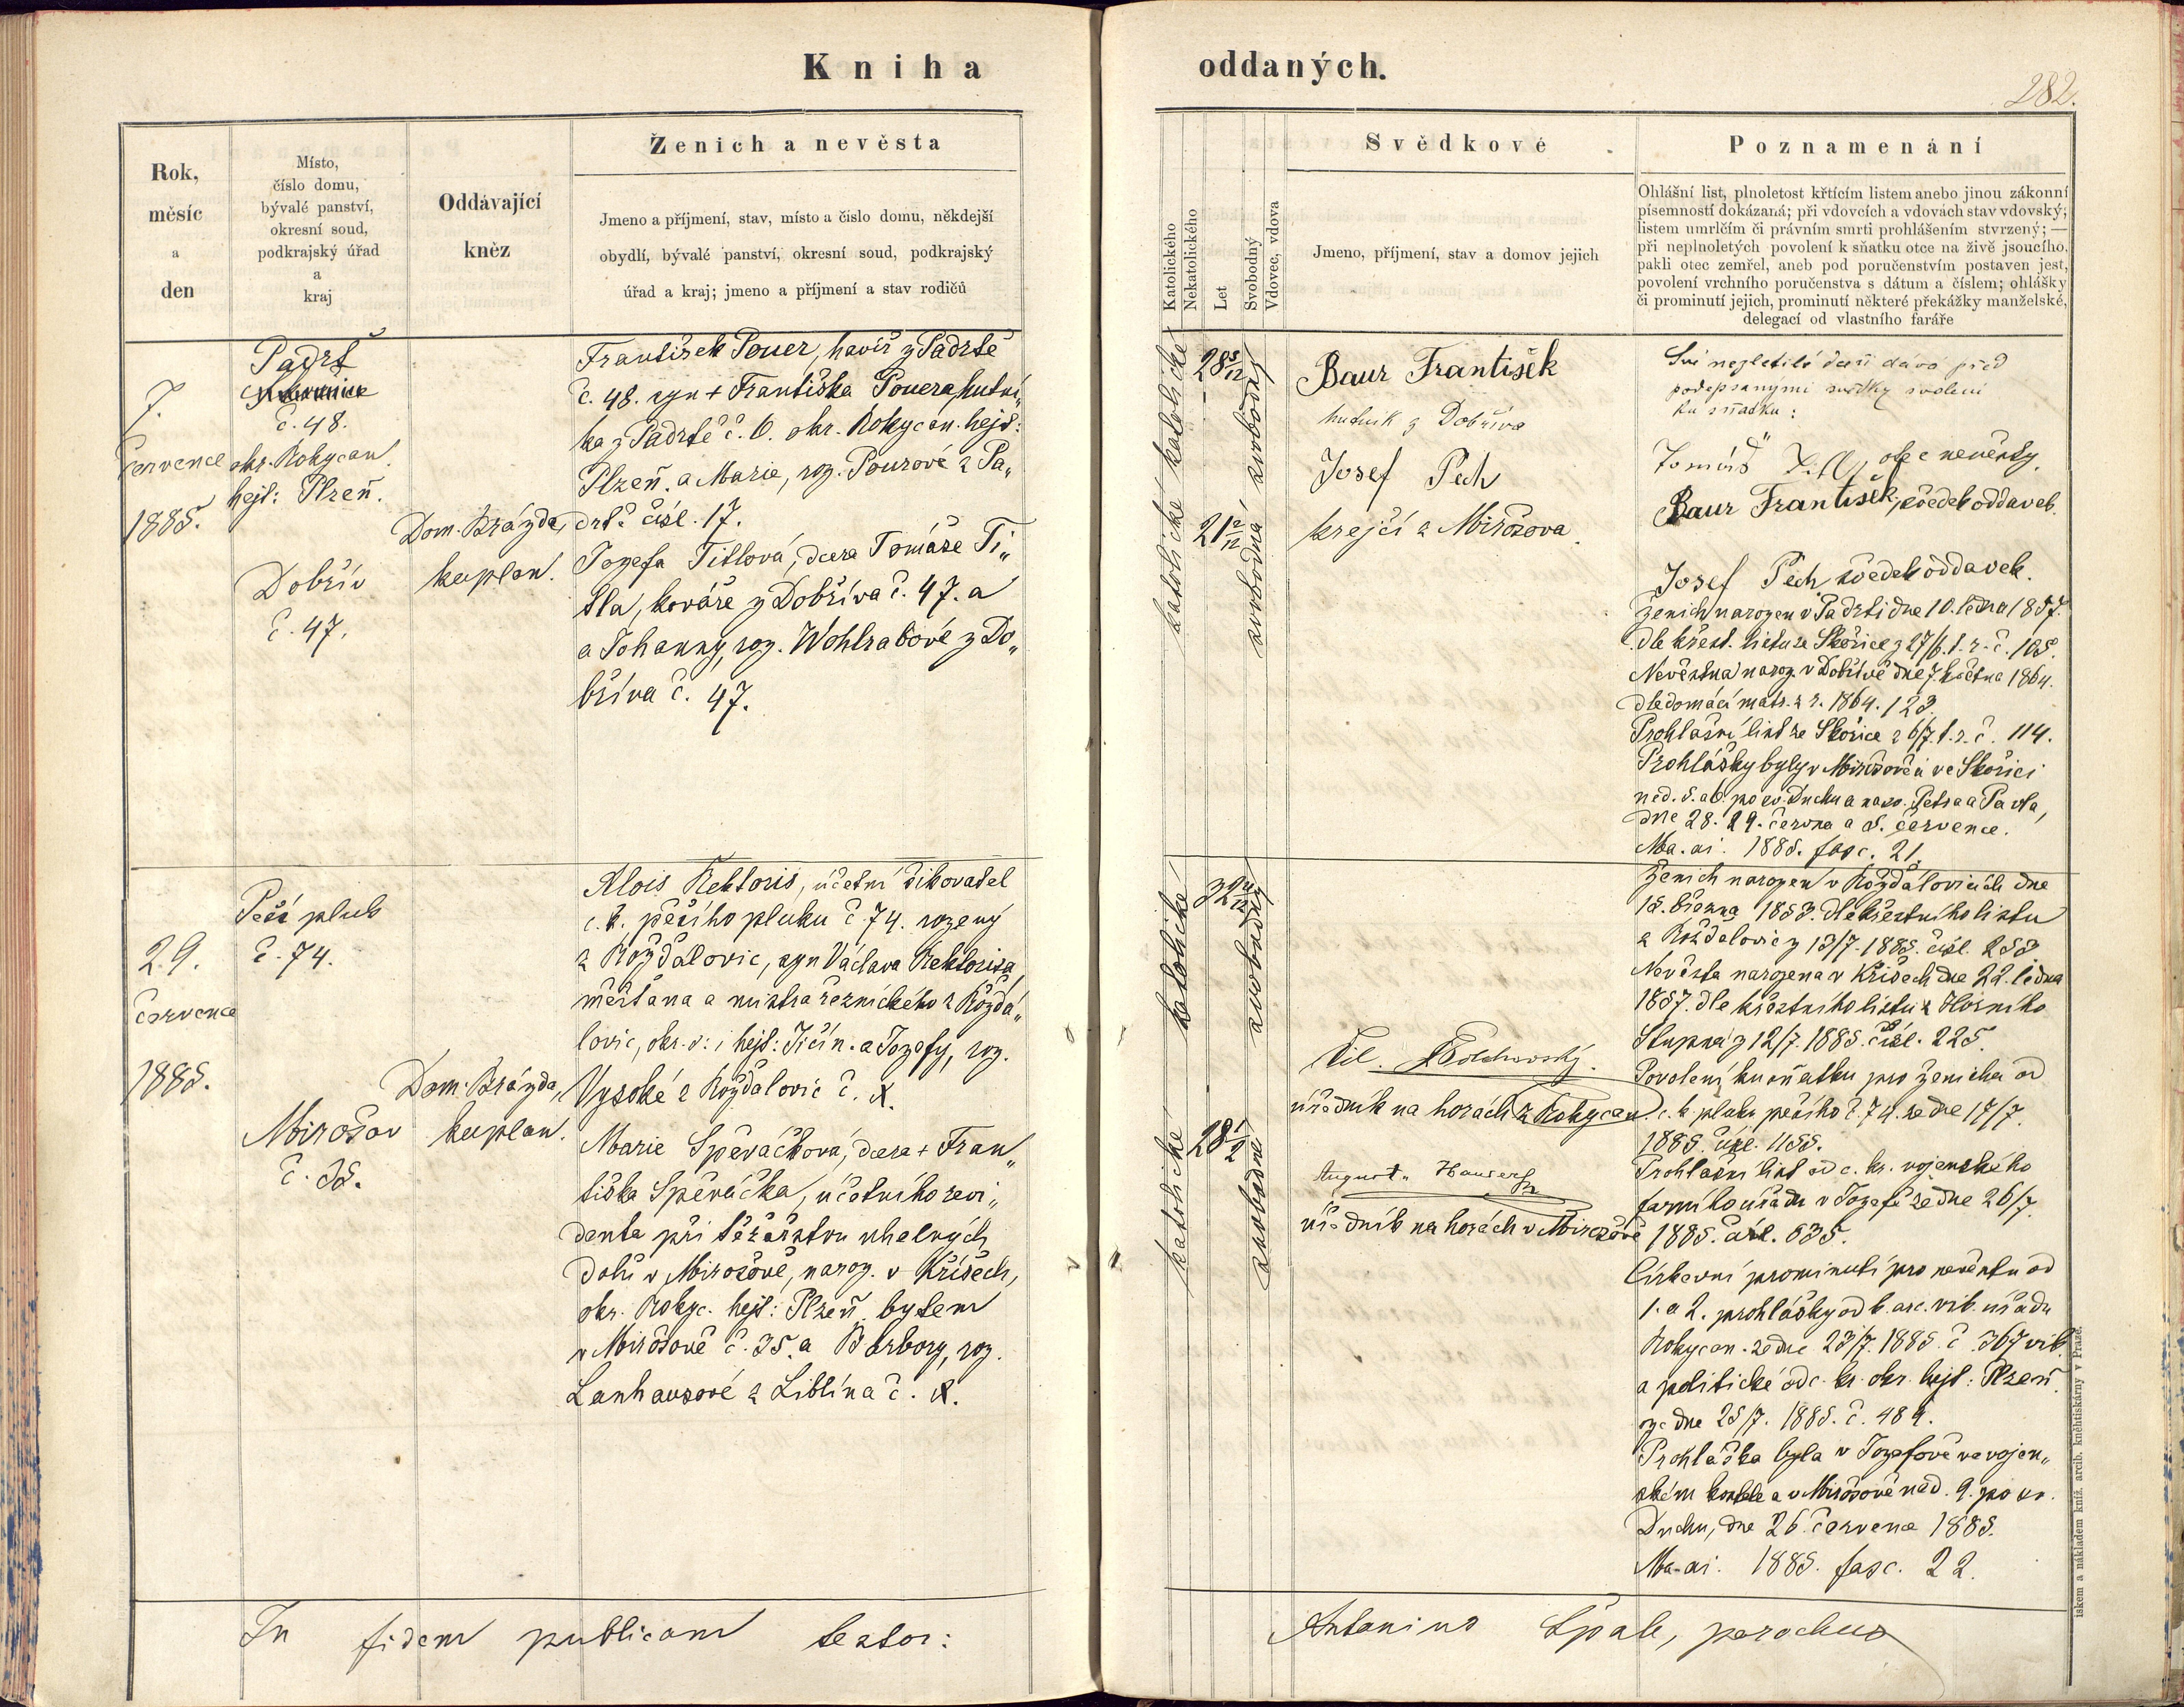 Kniha
oddaných.
282.
Rok,
měsíc
a
den
Místo,
číslo domu,
bývalé panství,
okresní soud,
podkrajský úřad
a
kraj
Oddávající
kněz
Ženich a nevěsta
Jmeno a příjmení, stav, místo a číslo domu, někdejší
obydlí, bývalé panství, okresní soud, podkrajský
úřad a kraj; jmeno a příjmení a stav rodičů
Katolického
Nekatolického
Let
Svobodný
Vdovec, vdova
Svědkové
Jmeno, příjmení, stav a domov jejich
Poznamenání
Ohlášní list, plnoletost křtícím listem anebo jinou zákonní
písemností dokázaná; při vdovcích a vdovách stav vdovský;
listem umrlčím či právním smrti prohlášením stvrzený; —
při neplnoletých povolení k sňatku otce na živě jsoucího,
pakli otec zemřel, aneb pod poručenstvím postaven jest,
povolení vrchního poručenstva s dátum a číslem; ohlášky
či prominutí jejich, prominutí některé překážky manželské,
delegací od vlastního faráře
7.
července
1885.
Padrť
č. 48.
okr. Rokycan.
hejt: Plzeň.
Dobřív
č. 47.
Dom. Brázda,
kaplan.
František Pouer, havíř z Padrtě
č. 48. syn + Františka Pouera, hutní„
ka z Padrtě č. 6. okr. Rokycan. hejt:
Plzeň. a Marie, roz. Pourové z Pa„
drtě čísl. 17.
Josefa Titlová, dcera Tomáše Ti„
tla, kováře z Dobříva č. 47. a
a Johanny, roz. Wohlrabové z Do„
bříva č. 47.
katolické katolické
28 5/12
21 2/12
svobodná svobodný
Baur František
hutník z Dobříva
Josef Pech
krejčí z Mirošova.
Své nezletilé dceři dává před
podepsanými svědky svolení
ku sňatku:
Tomáš Titl, otec nevěsty.
Baur František, svědek oddavek.
Josef Pech svědek oddavek.
Ženich narozen v Padrti dne 10. ledna 1857.
dle křest. listu ze Skořice z 27/6. t. r. č. 105.
Nevěsta naroz. v Dobřívě dne 7. května 1864.
dle domácí matr. z r. 1864. 123.
Prohlašní list ze Skořice z 6/7. t. r. č. 114.
Prohlášky byly v Mirošově a ve Skořici
ned. 5. a 6. po sv. Duchu a na sv. Petra a Pavla,
dne 28. 29. června a 5. července.
Ma. ai. 1885. fasc. 21.
29.
července
1885.
Pěší pluk
č. 74.
Mirošov
č. 35.
Dom. Brázda,
kaplan.
Alois Rektoris, účetní šikovatel
c. k. pěšího pluku č. 74. rozený
z Rožďálovic, syn Václava Rektorisa,
měšťana a mistra řeznického z Rožďá„
lovic, okr. s: i hejt: Jičín. a Josefy, roz.
Vysoké z Rožďalovic č. X.
Marie Spěváčkova, dcera + Fran„
tiška Spěváčka, účetního revi„
denta při těžařstvu uhelných
dolů v Mirošově, naroz. v Křišech,
okr. Rokyc. hejt: Plzeň, bytem
v Mirošově č. 35. a Barbory, roz.
Lanhausové z Liblína č. X.
katolické
32 4/12
svobodný
katolické
28 1/2
svobodná
úředník na horách z Rokycan
August. Hauser
úředník na horách v Mirošově
Ženich narozen v Rožďalovicích dne
15. března 1853. dle křestního listu
z Rožďalovic z 13/7. 1885. čísl. 253.
Nevěsta narozena v Křišech dne 22. ledna
1857. dle křestního listu z Horního
Stupna z 12/7. 1885. čísl. 225.
Povolení ku sňatku pro ženicha od
c. k. pluku pěšího č. 74. ze dne 17/7.
1885. čísl. 1155.
Prohlašní list od c. kr. vojenského
farního úřadu v Josefě ze dne 26/7.
1885. čísl. 635.
Církevní prominutí pro nevěstu od
1. a 2. prohlášky od b. arc. vik. úřadu
Rokycan. ze dne 23/7. 1885. č. 367 vik.
a politické od c. kr. okr. hejt: Plzeň.
ze dne 25/7. 1885. č. 484.
Prohláška byla v Josefově ve vojen„
ském kostele a v Mirošově ned. 9. po sv.
Duchu, dne 26. července 1885.
Ma. ai. 1885. fasc. 22.
In fidem publicam testor:
Antonius Špale, parochus